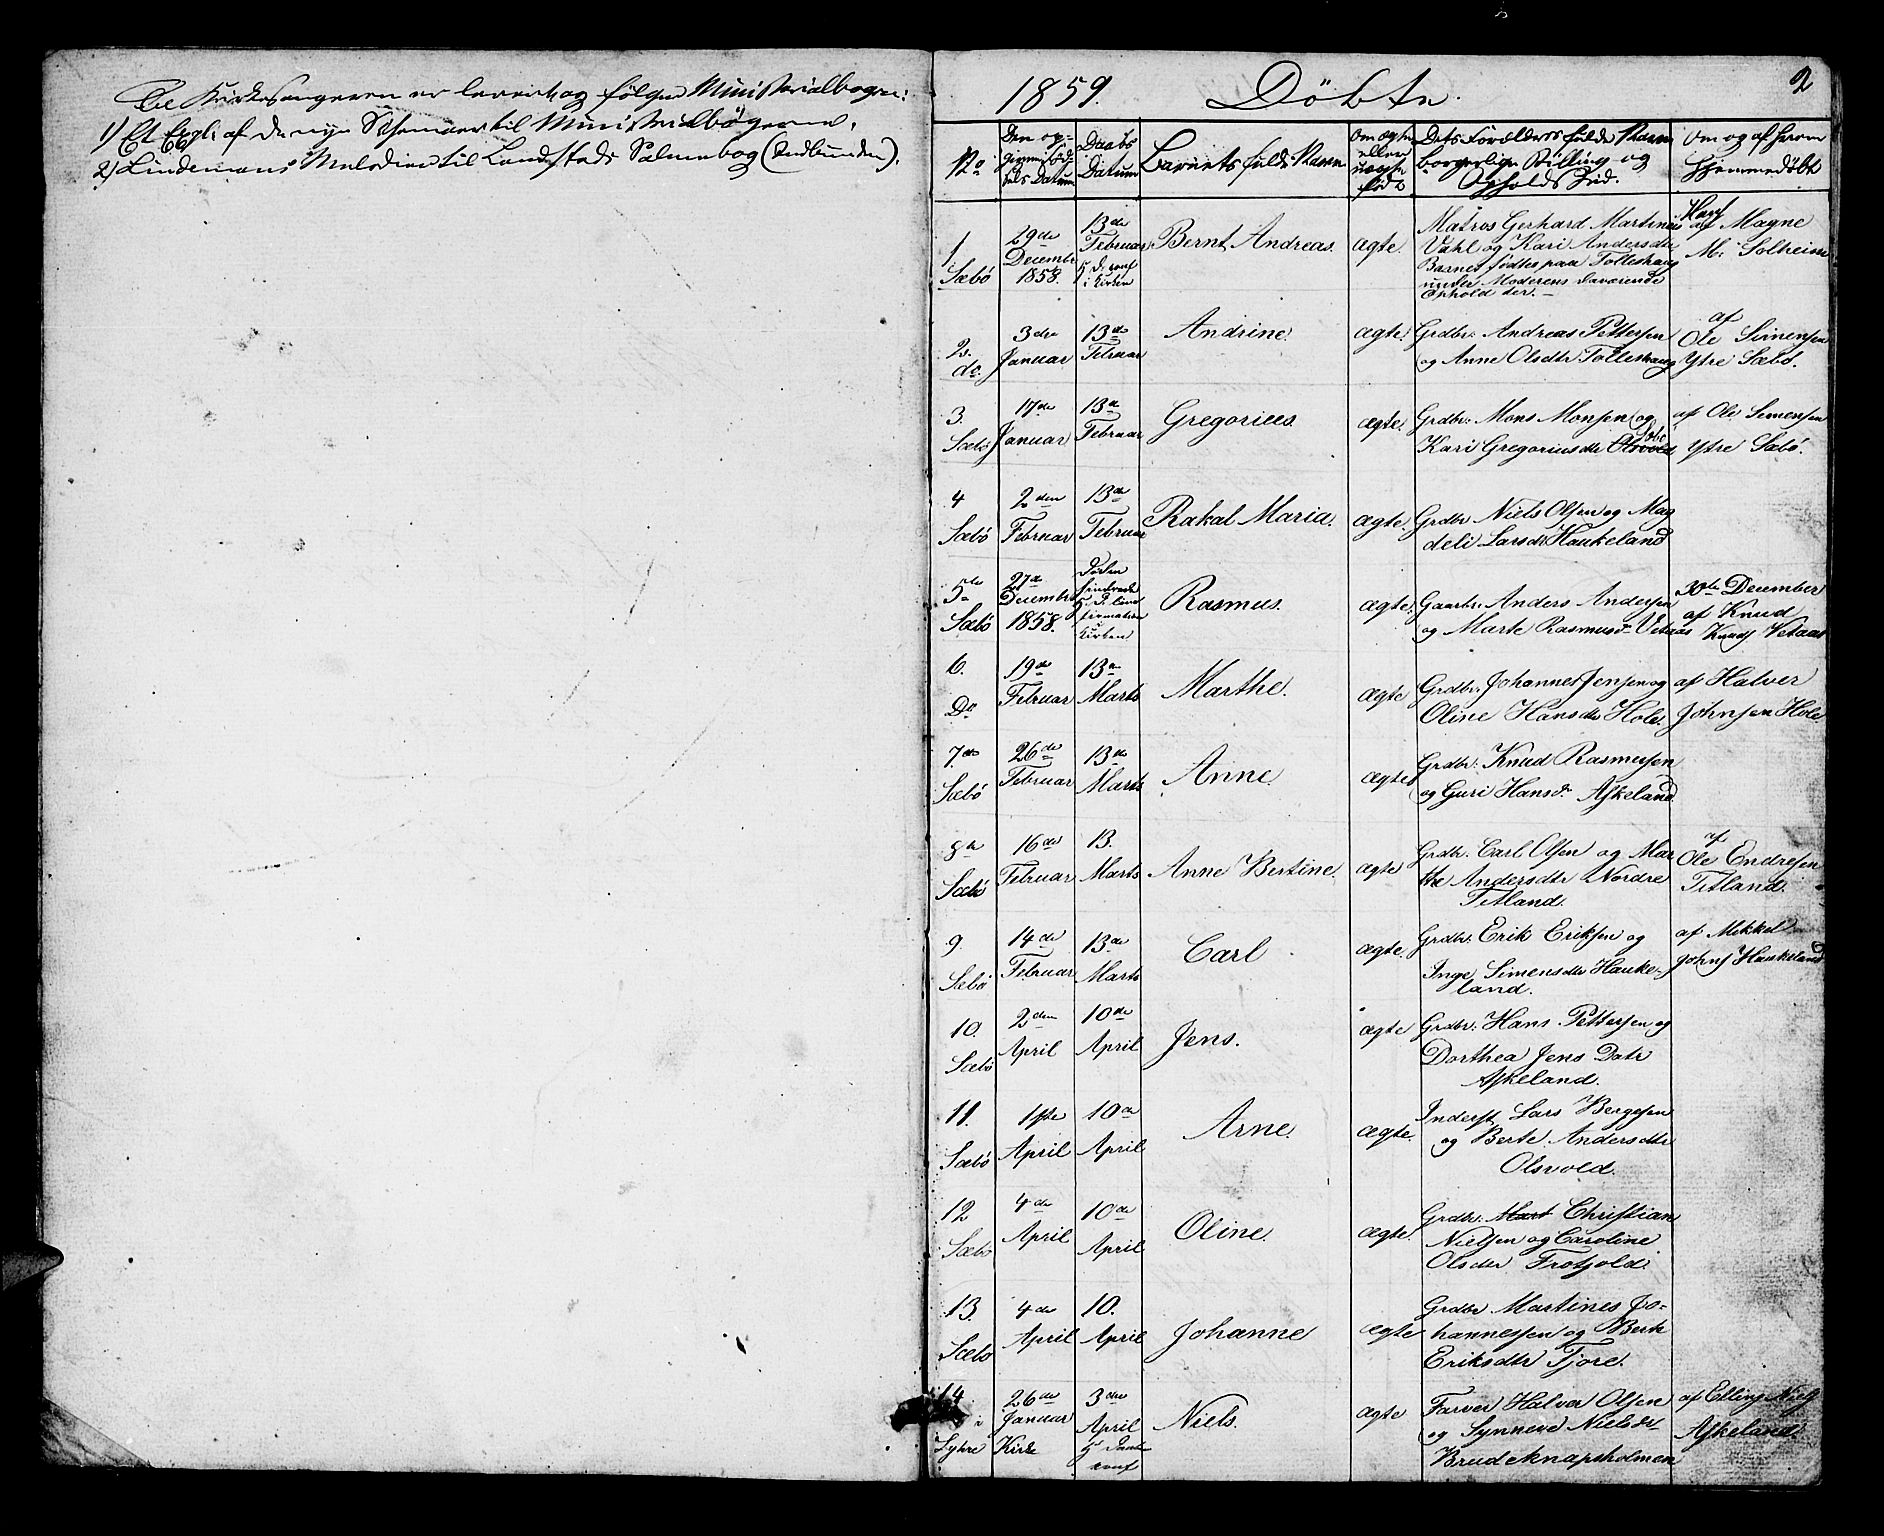 Til Kirkesangeren er leveret og følger Ministerialbogen:
1) Et Expl: af de nye Schemaer til Ministerialbøgerne.
2) Lindemans Melodier til Landstads Salmebog (indbunden).
1859. Döbte. 2
No
Den op-
givne Föd-
sels Datum
Daabs
Datum
Barnets fulde Navn
Om ægte
eller
uægte
född
Dets Forældres fulde Navn
borgerlige Stilling og
Opholds Sted.
Om og af hvem
Hjemmedöbt
1.
Sæbö
29de
Decembr
1858.
13de
Februar
i Kirken
Bernt Andreas.
ægte.
Matros Gerhard Martinius
Vahl og Kari Andersdtr
Barnet födtes paa Tolleshaug
under Moderens daværende
Ophold der.
af Magne
M. Solheim
2.
do.
3die
Januar
13de
Februar
Andrine.
ægte.
Grdbr. Andreas Pettersen
og Anne Olsdtr. Tolleshaug
af
Ole Simensen
Ytre Sæbö.
3.
Sæbö
17de
Januar
13de
Februar
Gregorius.
ægte.
Grdbr. Mons Monsen og
Kari Gregoriusdtr Olsvold
af Ole Simensen
Ytre Sæbö.
4
Sæbö
2den
Februar
13de
Februar
Rakal Maria.
ægte.
Grdbr. Niels Olsen og Mag
deli Larsdtr Haukeland
5te
Sæbö
27de
Decembr
1858.
Kirken
Rasmus.
ægte.
Gaardbr. Anders Andersen
og Marte Rasmusdr Vetaas
30te December
af Knud
Knuds Vetaas
6.
Do
19de
Februar
13de
Marts
Marthe.
ægte
Grdbr. Johannes Jensen og
Oline Hansdtr Hole.
af Halver
Johnsen Hole
7de
Sæbö
26de
Februar
13de
Marts
Anne.
ægte
Grdbr. Knud Rasmusen
og Guri Hansdr. Askeland
8de
Sæbö
16de
Februar
13.
Marts
Anne Bertine.
ægte
Grdbr. Carl Olsen og Mar
the Andersdtr Nordre
Titland.
af
Ole Endresen
Titland.
9.
Sæbö
14de
Februar
13de
Marts
Carl
ægte.
Grdbr. Erik Eriksen og
Inge Simensdtr Hauke-
land.
af Mikkel
Johns Haukeland
10.
Sæbö
2den
April
10de
April
Jens.
ægte
Grdbr. Hans Pettersen og
Dorthea Jens Datr
Askeland.
11.
Sæbö
1ste
April
10de
April
Arne.
ægte.
Inderst Lars Bergesen
og Berte Andersdtr
Olsvold.
12
Sæbö
4de
April
10de
April
Oline.
ægte.
Grdbr. Mart Christian
Nielsen og Caroline
Olsdtr Frotjold.
13.
Sæbö
4de
April
10.
April
Johanne
ægte
Grdbr Martines Jo-
hannessen og Berte
Eriksdtr Tjore.
14
i
Lygre Kirke
26de
Januar
3die
April
Niels.
ægte
Farver Halvor Olsen
og Synneve Nielsdr
Brudeknapsholmen
af Elling Niels
Askeland.